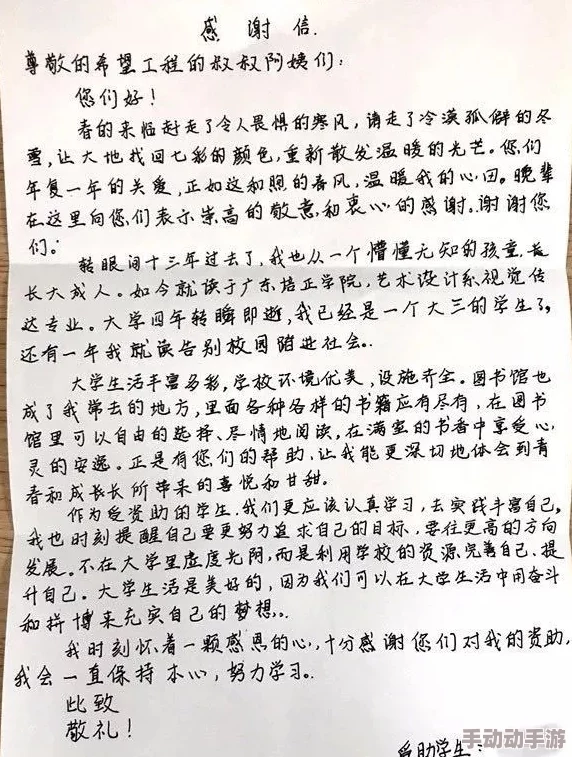 感谢信.
尊敬的希望工程的叔叔阿姨们:
您们好!
春的来临赶走了令人畏惧的寒风,请走了冷漠孤僻的冬
雪,让大地找回七彩的颜色,重新散发温暖的光芒。您们
年复一年的关爱,正如这和照的春风,温暖我的心田。晚辈
在这里向您们表示崇高的敬意和衷心的感谢。谢谢您
们。
转眼间十三年过去了,我也从一个懵懂无知的孩童,长
长大成人。如今就读于广东培正学院,艺术设计系视觉传
达专业。大学四年转瞬即逝,我已经是一个大三的学生了,
还有一年我就读告别校园踏进社会。
大学生活丰富多彩,学校环境优美,设施齐全。图书馆也
成了我常去的地方,里面各种各样的书籍应有尽有,在图书
馆里可以自由的选择、尽情地阅读,在满室的书香中享受心
灵的安逸。正是有您们的帮助,让我能更深切地体会到青
春和成长长所带来的喜悦和甘甜。
作为受资助的学生,我们更应该认真学习,去实践丰富自己。
我也时刻提醒自己要更努力追求自己的目标,要往更高的方向
发展。不在大学里虚度光阴,而是利用学校的资源完善自己、提
升自己。大学生活是美好的,因为我们可以在大学生活中用奋斗
和拼搏来充实自己的梦想。
我时刻怀着一颗感恩的心,十分感谢您们对我的资助,
我会一直保持本心,努力学习。
此致
敬礼!
受助学生:
手动动手游